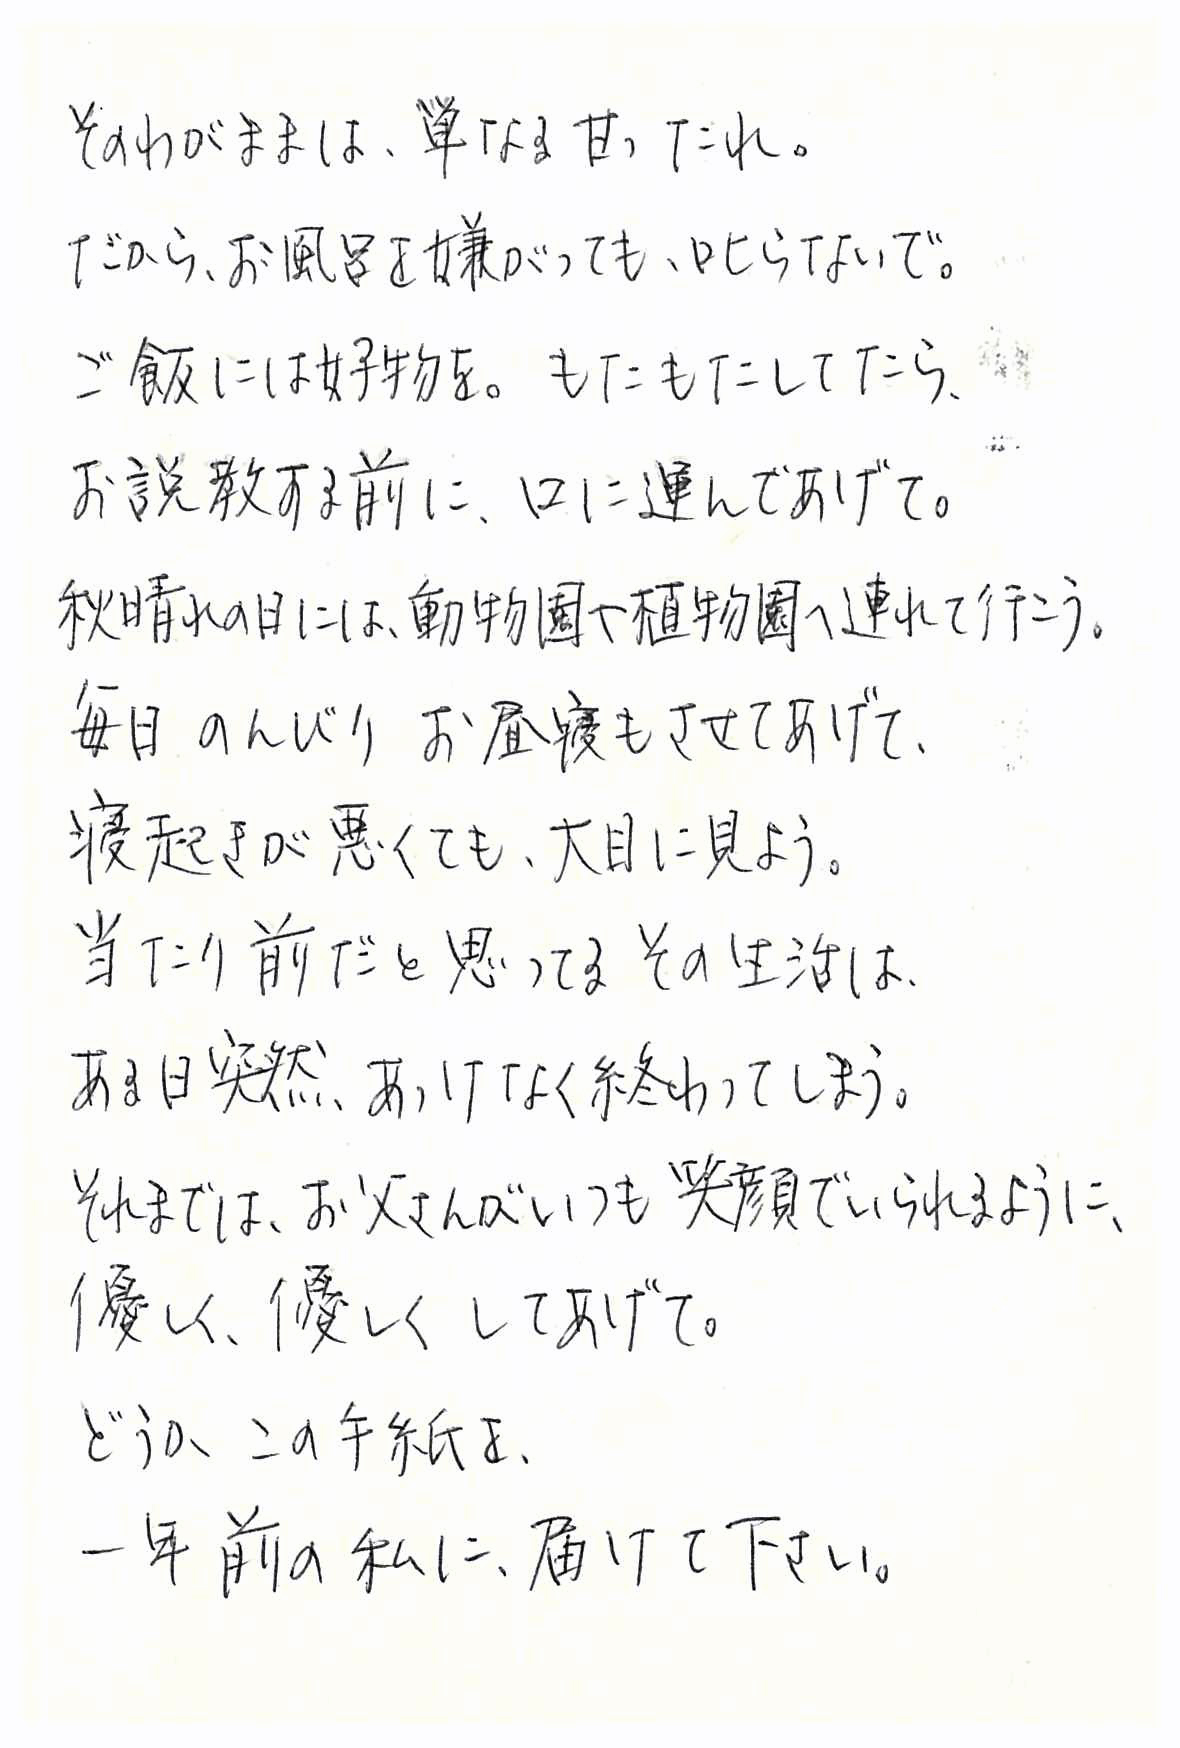 そのわがままは、単なる甘ったれ。
だから、お風呂を嫌がっても、叱らないで。
ご飯には好物を。もたもたしてたら、
お説教する前に、口に運んであげて。
秋晴れの日には、動物園や植物園へ連れて行こう。
毎日のんびりお昼寝もさせてあげて、
寝起きが悪くても、大目に見よう。
当たり前だと思ってるその生活は、
ある日突然、あっけなく終わってしまう。
それまでは、お父さんがいつも笑顔でいられるように、
優しく、優しくしてあげて。
どうか、この手紙を、
一年前の私に、届けて下さい。